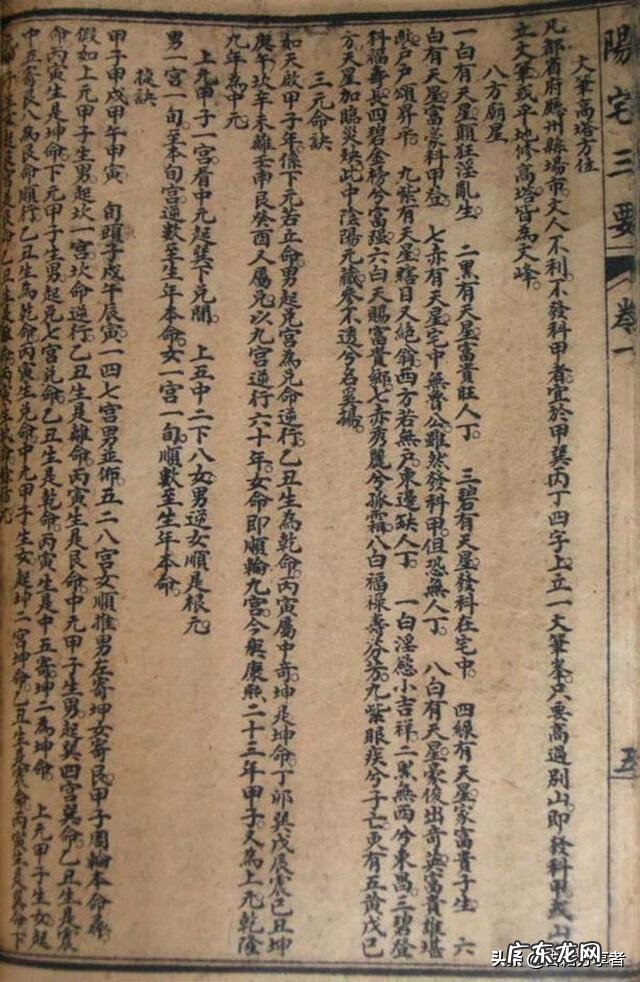 陽宅三要 卷一 五
文筆高塔方位
凡都省府廳州縣場市文人不利不發科甲者宜於甲巽丙丁四字上立一文筆峯只要高過別山即發科甲或山
立文筆或平地修高塔皆為文峰
八方廟星
一白有天星顛狂淫亂生 二黑有天星富貴旺人丁 三碧有天星發科在宅中 四綠有天星家富貴子生 六
白有天星富豪科甲登 七赤有天星宅中無貴公雖然發科甲但恐無人丁 八白有天星豪俊出奇英富貴雄堪
戶戶頌昇平 九紫有天星瞎目又絕翁西方若無戶東邊缺人丁 一白淫慾小吉祥二黑無西兮東昌三碧登
科福壽長四碧金榜兮富强六白天賜富貴鄉七赤秀麗兮孤霜八白福祿壽芬芳九紫眼疾兮子亡更有五黄戊己
方天星加臨災殃此中陰陽元藏參不透兮名莫揚
三元命訣
如天啟甲子年係下元若立命男起兌宮為兌命逆行乙丑生為乾命丙寅屬中寄坤是坤命丁卯巽戊辰震己丑坤
庚午坎辛未離壬申艮癸酉又屬兌以九宮逆行六十年女命即順輪九宮今與康熙二十三年甲子又為上元乾隆
九年為中元
上元甲子一宮看中元起巽下兌間 上五中二下八女男逆女順是根元
男一宮一旬至本旬宮逆數至生年本命女一宮一旬順數至生年本命
捷訣
甲子甲戌甲午甲寅 旬頭子戌午辰寅一四七宮男並佈五二八宮女順推男左寄坤女寄艮甲子周輪本命尋
假如上元甲子生男起坎一宮坎命逆行乙丑生是離命丙寅生是艮命中元甲子生男起巽四宮巽命乙丑生是震
命丙寅生是坤命下元甲子生男起兌七宮兌命乙丑生是乾命丙寅生是中五寄坤二為坤命 上元甲子生女起
中五寄艮八為艮命順行乙丑生為乾命丙寅生兌命中元甲子生女起坤二宮坤命乙丑生是震命丙寅生是巽命下
头条
享者
广东龙网